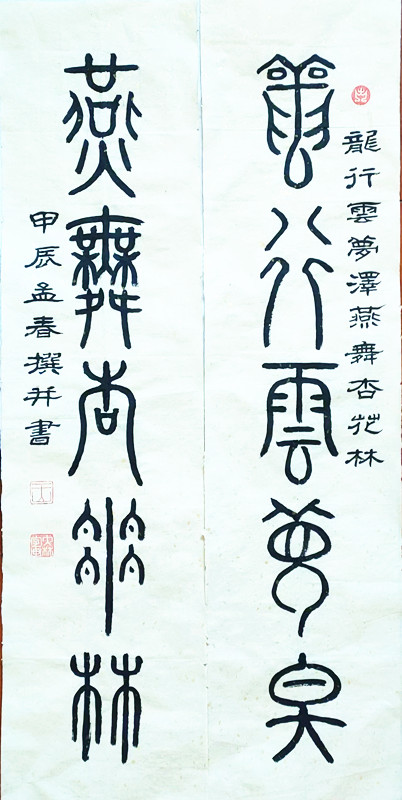 龍行雲夢澤燕舞杏花林
龍行雲夢澤
燕舞杏花林
甲辰孟春撰并書